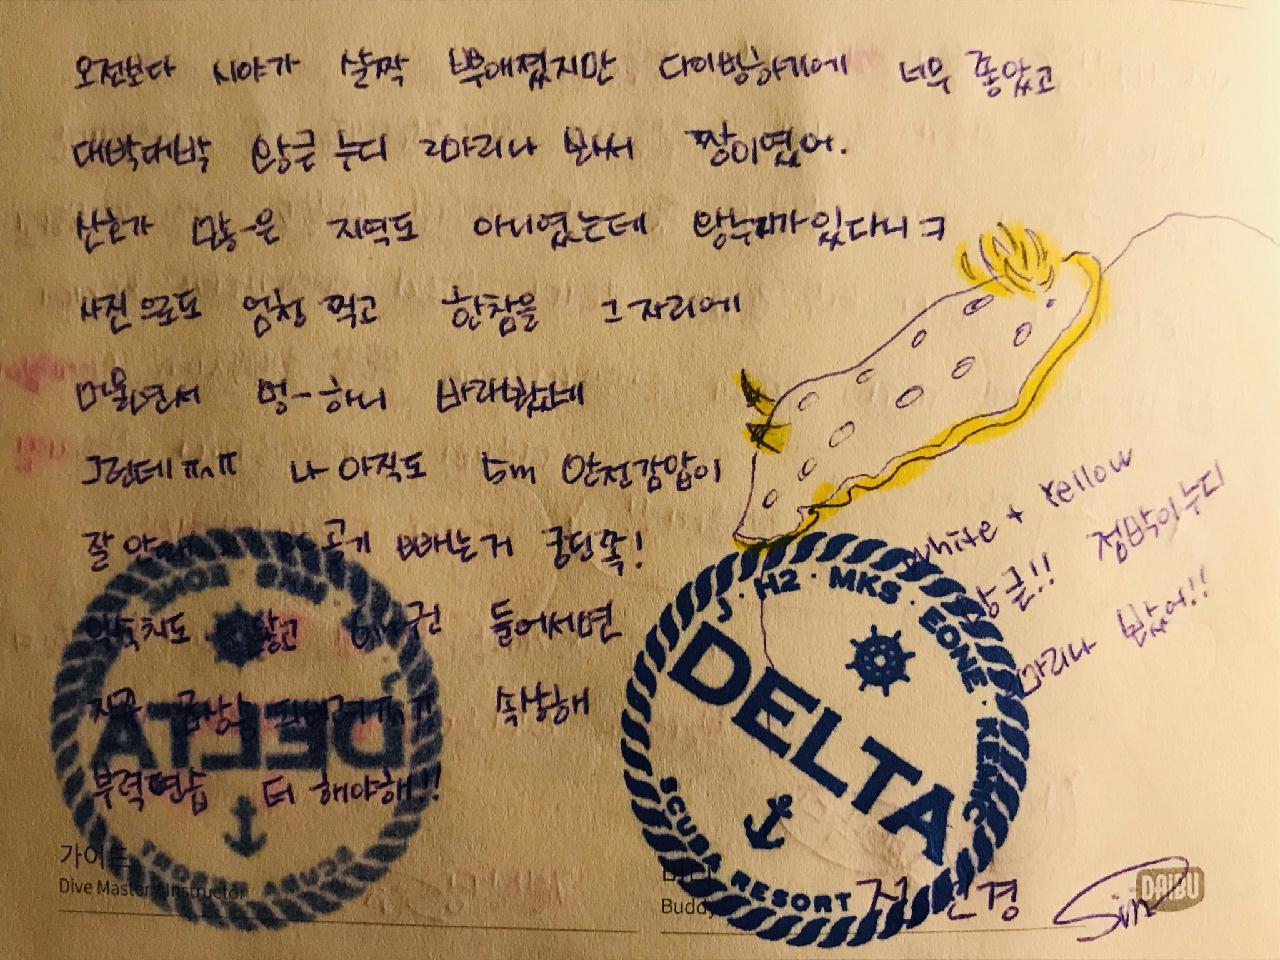 오전보다 시야가 살짝 뿌애졌지만 다이빙하기에 너무 좋았고
대박대박 왕큰 누디 2마리나 봐서 짱이였어.
산호가 많-은 지역도 아니였는데 왕누디가있다니 ㅋ
사진으로도 엄청 먹고 한참을 그 자리에
머물면서 멍-하니 바라봤네
그런데 ㅠㅅㅠ 나 아직도 5m 안전감압이
잘 안 공기 빼는거
않고 들어서면
속상해
부력연습 더 해야해!!
White + Yellow
왕큰!! 점박이누디
마리나 봤어!!
J · H2 · MKS · EONE · KEMIC
DELTA
SCUBA RESORT
가이드
Dive Master / Instructor
Buddy
DAIBU